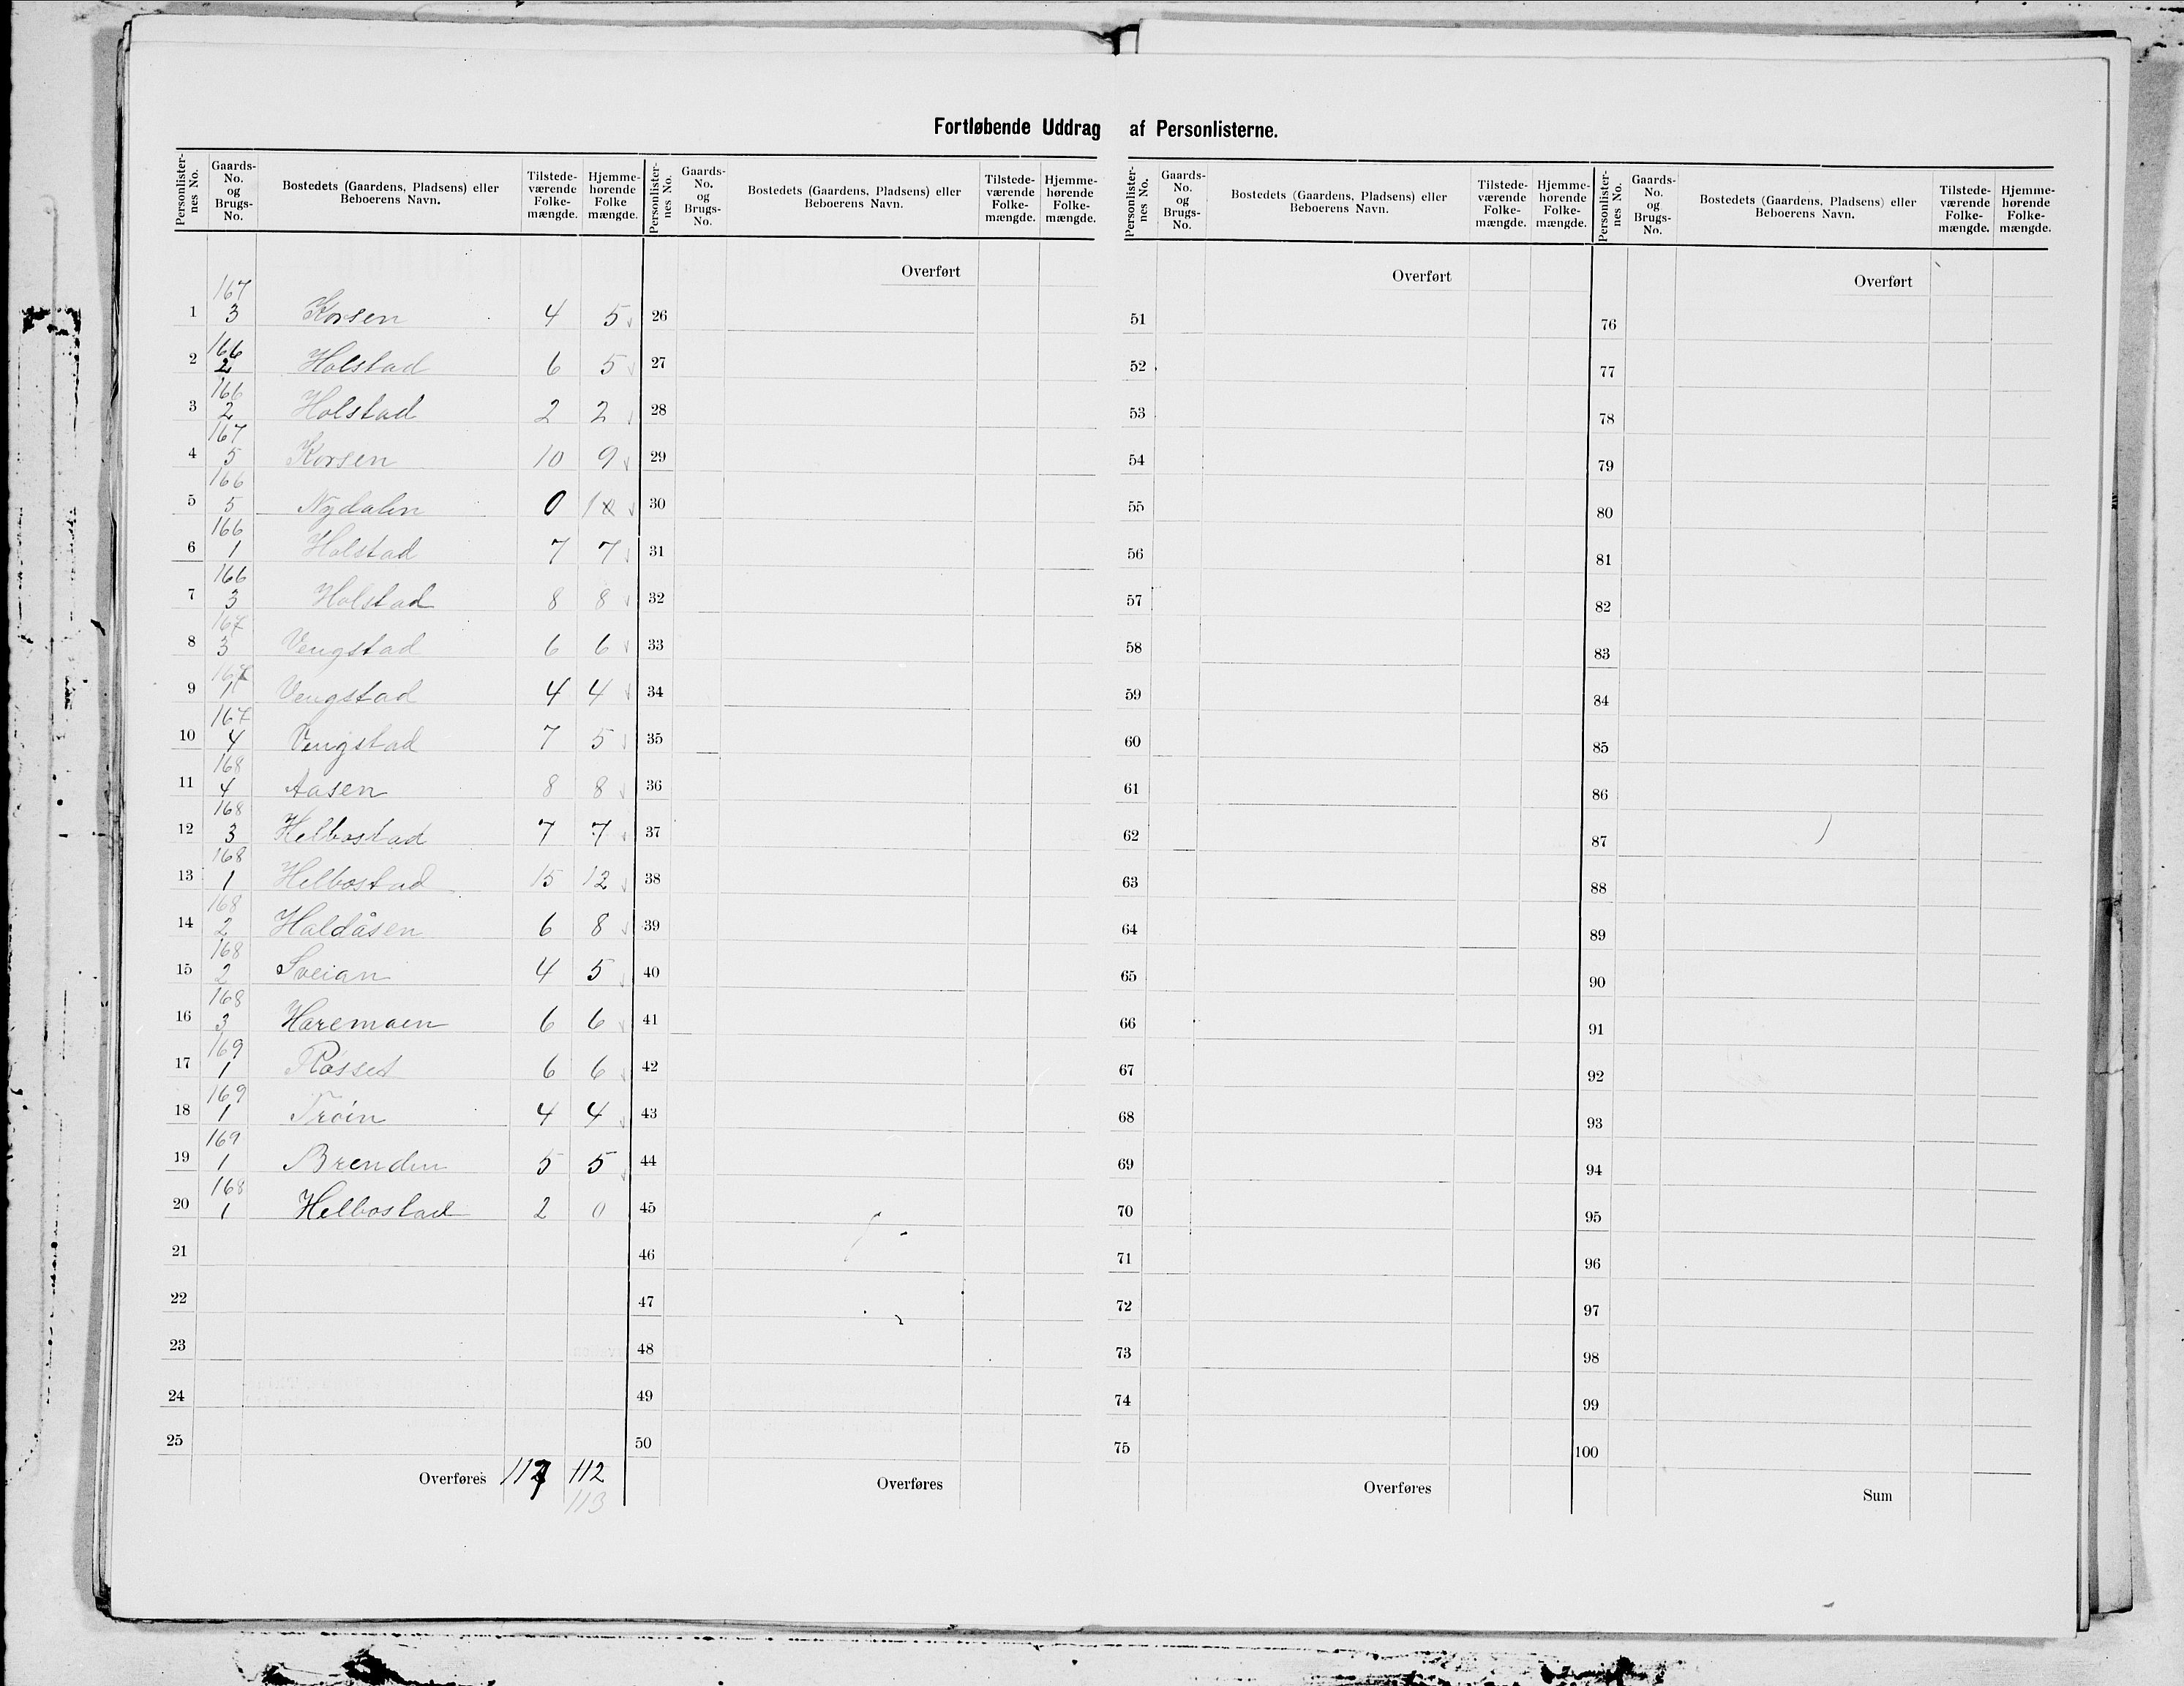 Fortløbende Uddrag af Personlisterne.
Personlister-nes No. | Gaards-No. og Brugs-No. | Bostedets (Gaardens, Pladsens) eller Beboerens Navn. | Tilstede-værende Folke-mængde. | Hjemme-hørende Folke mængde.
1 167/3 Korsen 4 5
2 166/2 Holstad 6 5
3 166/2 Holstad 2 2
4 167/5 Korsen 10 9
5 166/5 Nydalen 0 1
6 166/1 Holstad 7 7
7 166/3 Holstad 8 8
8 167/3 Vengstad 6 6
9 167/1 Vengstad 4 4
10 167/4 Vengstad 7 5
11 168/4 Aasen 8 8
12 168/3 Helbostad 7 7
13 168/1 Helbostad 15 12
14 168/2 Haldåsen 6 8
15 168/2 Sveian 4 5
16 168/3 Haremoen 6 6
17 169/1 Røsset 6 6
18 169/1 Trøin 4 4
19 169/1 Brenden 5 5
20 168/1 Helbostad 2 0
21
22
23
24
25
Overføres 117 112
113
Personlister-nes No. | Gaards-No. og Brugs-No. | Bostedets (Gaardens, Pladsens) eller Beboerens Navn. | Tilstede-værende Folke-mængde. | Hjemme-hørende Folke-mængde.
Overført
26
27
28
29
30
31
32
33
34
35
36
37
38
39
40
41
42
43
44
45
46
47
48
49
50
Overføres
Personlister-nes No. | Gaards-No. og Brugs-No. | Bostedets (Gaardens, Pladsens) eller Beboerens Navn. | Tilstede-værende Folke-mængde. | Hjemme-hørende Folke-mængde.
Overført
51
52
53
54
55
56
57
58
59
60
61
62
63
64
65
66
67
68
69
70
71
72
73
74
75
Overføres
Personlister-nes No. | Gaards-No. og Brugs-No. | Bostedets (Gaardens, Pladsens) eller Beboerens Navn. | Tilstede-værende Folke-mængde. | Hjemme-hørende Folke-mængde.
Overført
76
77
78
79
80
81
82
83
84
85
86
87
88
89
90
91
92
93
94
95
96
97
98
99
100
Sum